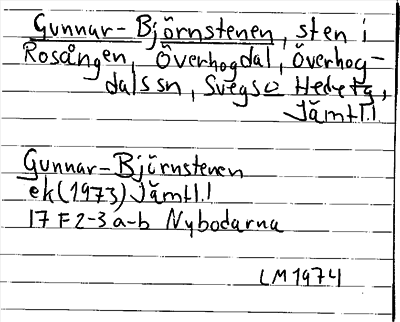 Gunnar-Björnstenen, sten i
Rosången, Överhogdal, Överhog-
dalssn, Svegs
Jämtl.l
Gunnar-Björnstenen
ek (1973) Jämtl.l
17 F 2-3 a-b Nybodarna
LM 1974